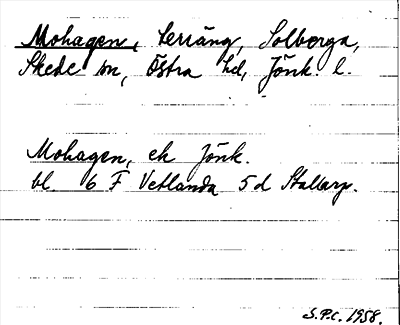 Mohagen, terräng, Solberga,
Skede sn, Östra hd, Jönk. l.
Mohagen, ek Jönk.
bl 6 F Vetlanda 5d Stallarp.
S.P.C. 1958.